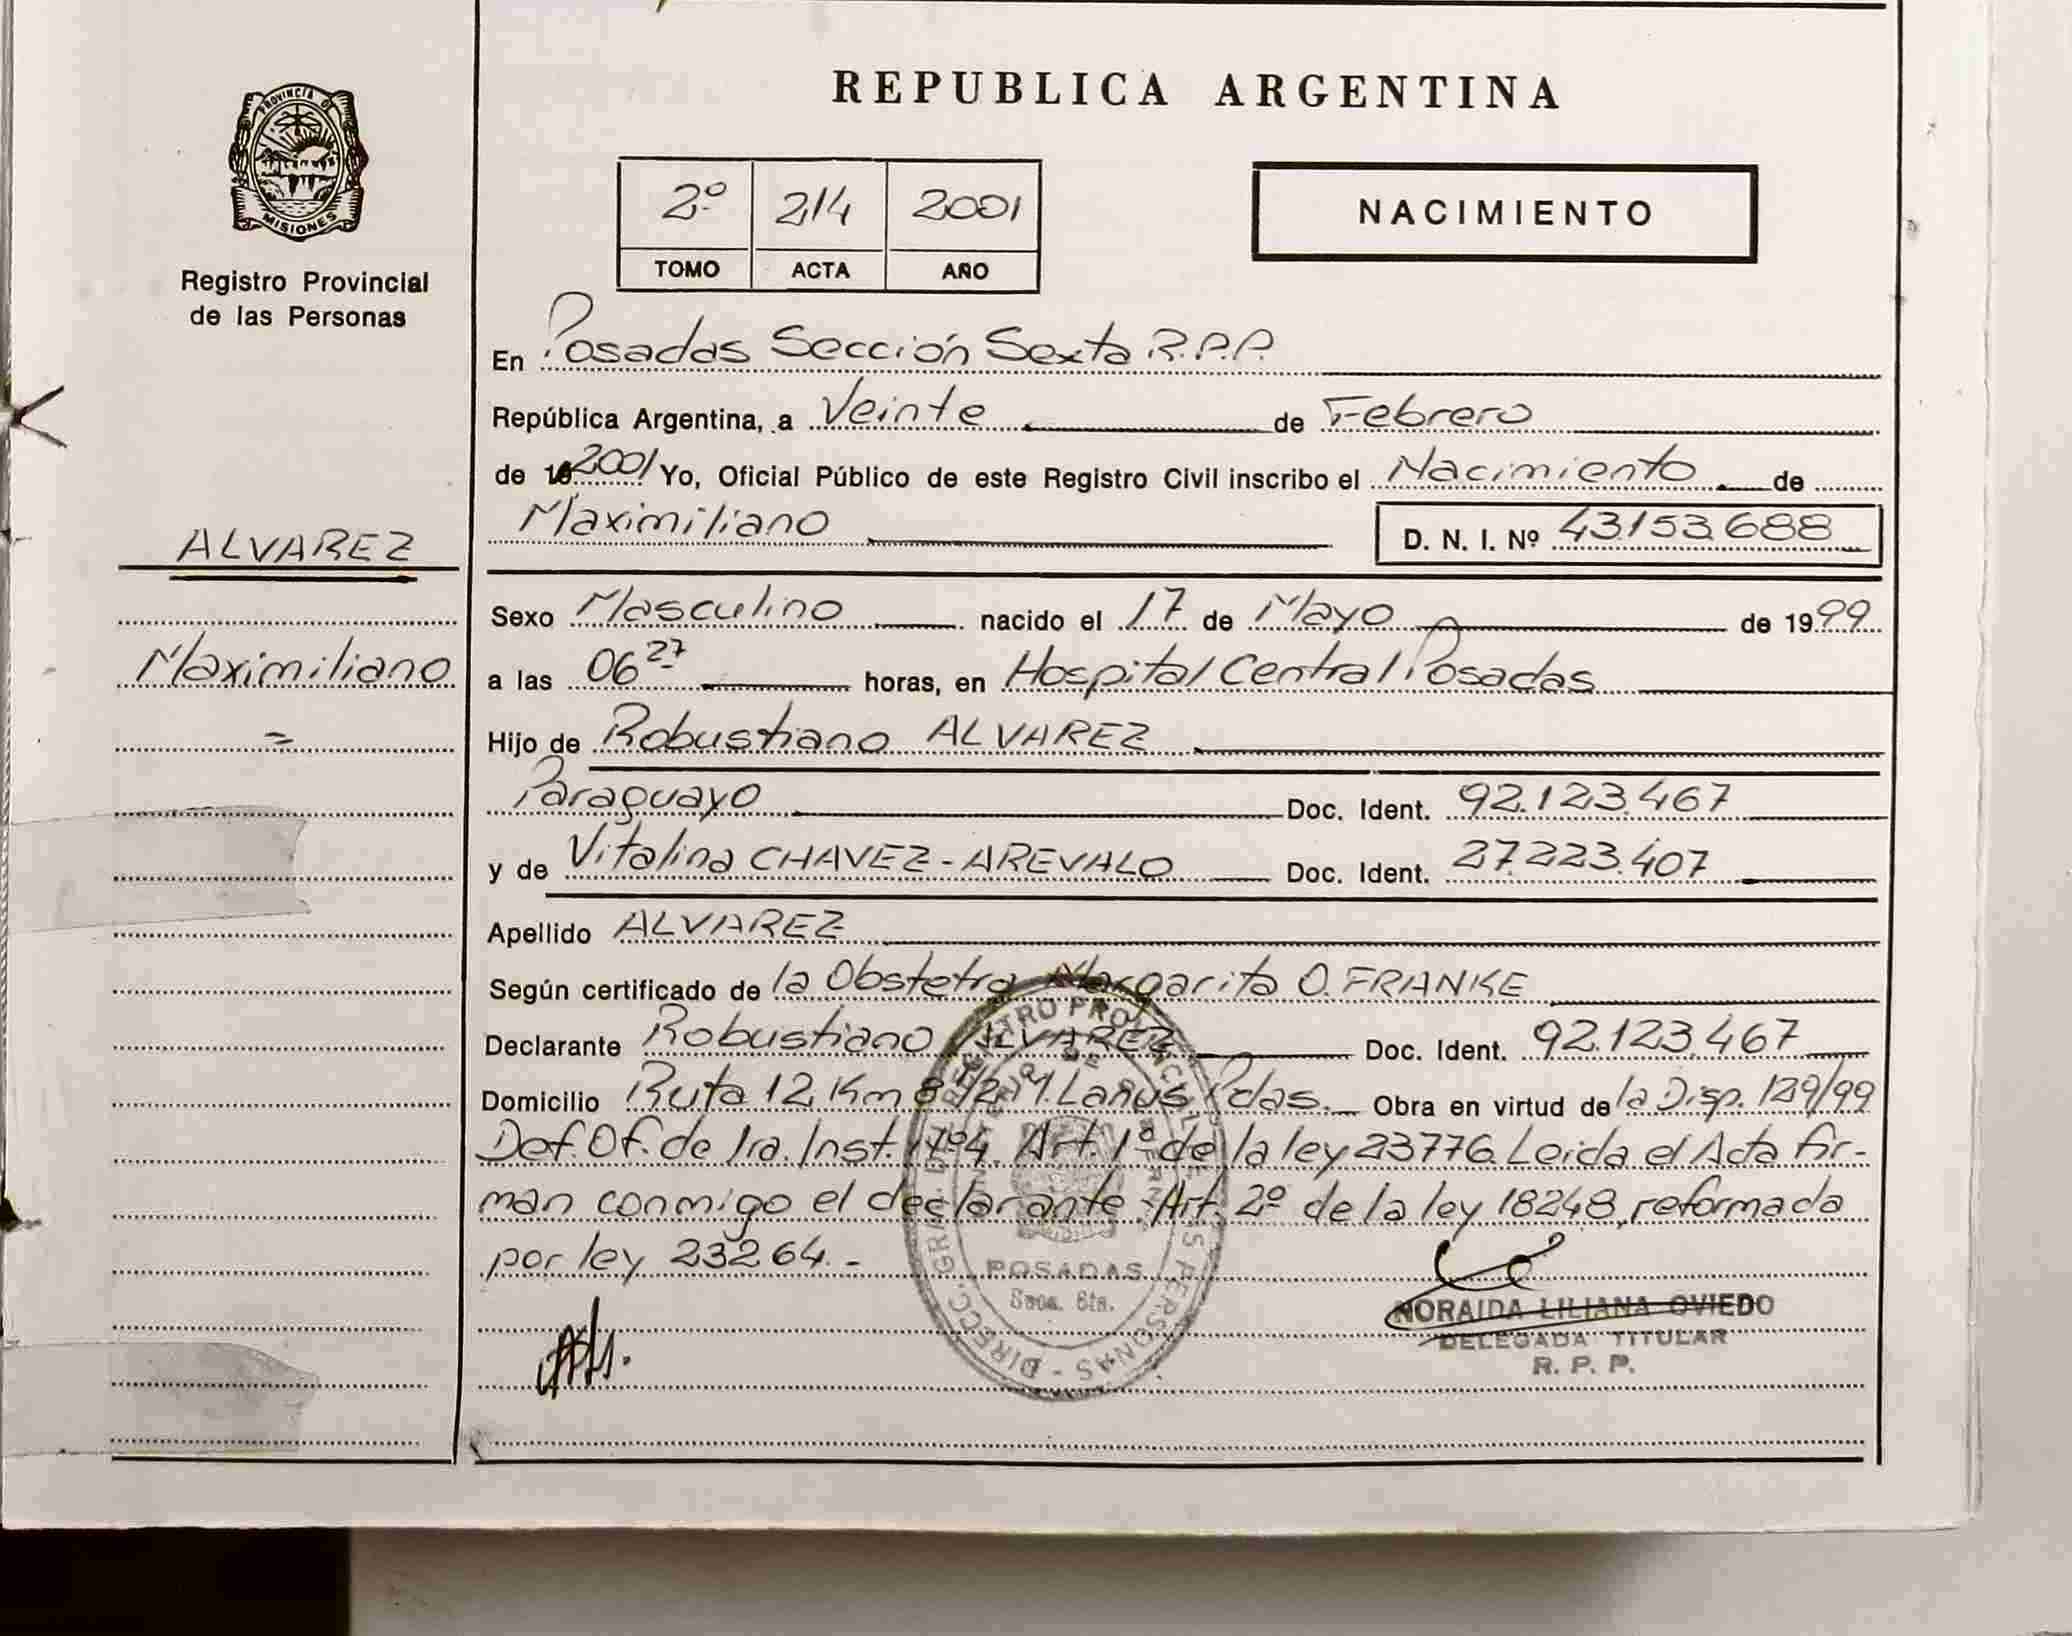 REPUBLICA ARGENTINA
PROVINCIA DE
MISIONES
Registro Provincial
de las Personas
2º 214 2001
TOMO ACTA AÑO
NACIMIENTO
En Posadas Sección Sexta R.P.P.
República Argentina, a Veinte de Febrero
de 19 2001 Yo, Oficial Público de este Registro Civil inscribo el Nacimiento de
Maximiliano D. N. I. Nº 43.153.688
ALVAREZ
Maximiliano
=
Sexo Masculino nacido el 17 de Mayo de 1999
a las 06 27 horas, en Hospital Central Posadas
Hijo de Robustiano ALVAREZ
Paraguayo Doc. Ident. 92.123.467
y de Vitalina CHAVEZ-AREVALO Doc. Ident. 27.223.407
Apellido ALVAREZ
Según certificado de la Obstetra Margarita O. FRANKE
Declarante Robustiano ALVAREZ Doc. Ident. 92.123.467
Domicilio Ruta 12 Km 8 1/2 M. Lanús Pdas. Obra en virtud de la Disp. 129/99
Def. Of. de 1ra. Inst. Nº4. Art. 1º de la ley 23776. Leida el Acta fir-
man conmigo el declarante. Art. 2º de la ley 18248, reformada
por ley 23264.-
DIREC. GRAL. DEL REGISTRO PROVINCIAL DE LAS PERSONAS
POSADAS
Secc. 6ta.
NORAIDA LILIANA OVIEDO
DELEGADA TITULAR
R. P. P.